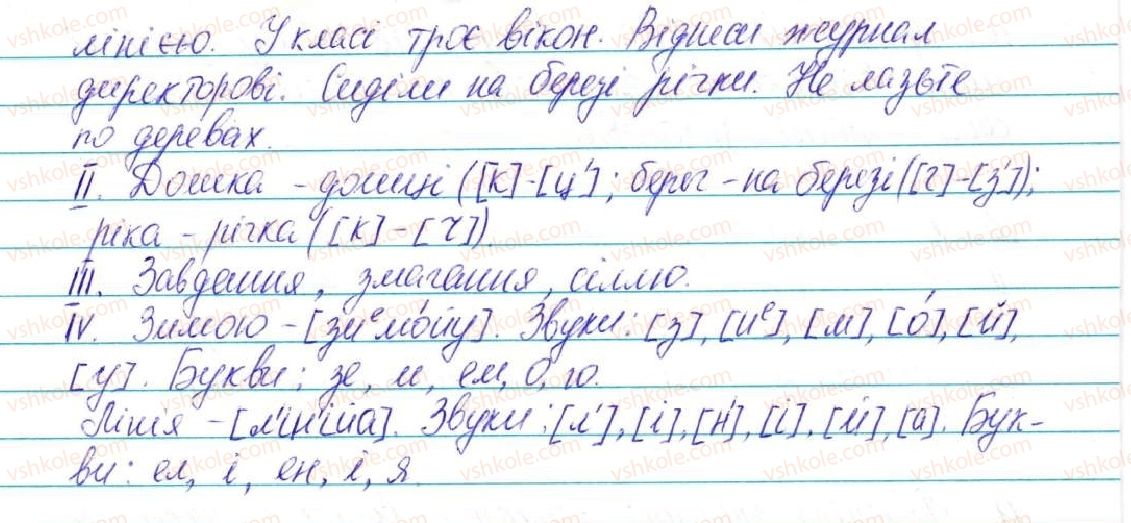 лінією. У класі троє вікон. Віднеси журнал
директорові. Сиділи на березі річки. Не лазьте
по деревах.
II. Дошка – дошці ([к]-[ц']; берег – на березі ([г]-[з']);
ріка – річка ([к]-[ч]).
III. Завдання, змагання, сіллю.
IV. Зимою – [зиᵉмо́йу]. Звуки: [з], [иᵉ], [м], [о́], [й],
[у]. Букви: зе, и, ем, о, ю.
Лінія – [л'ін'ійа]. Звуки: [л'], [і], [н'], [і], [й], [а]. Бук-
ви: ел, і, ен, і, я.